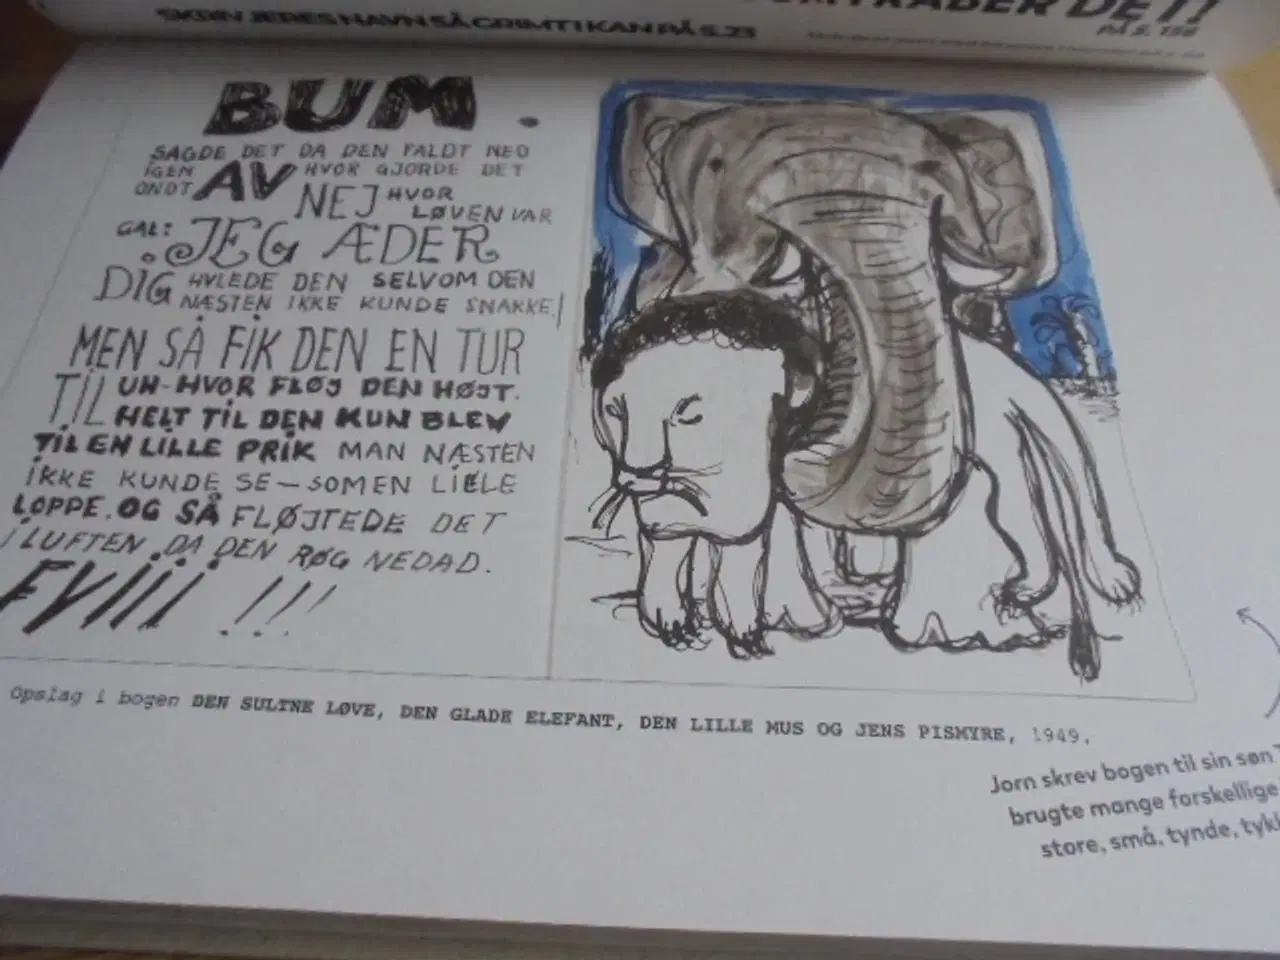 KADER DET!
PÅ S. 156
SKRIV JERES NAVN SÅ GRIMT I KAN PÅ S. 23
BUM.
SAGDE DET DA DEN FALDT NED
IGEN AV HVOR GJORDE DET
ONDT NEJ HVOR
LØVEN VAR
GAL: JEG ÆDER
DIG HYLEDE DEN SELVOM DEN
NÆSTEN IKKE KUNDE SNAKKE.
MEN SÅ FIK DEN EN TUR
TIL UH-HVOR FLØJ DEN HØJT.
HELT TIL DEN KUN BLEV
TIL EN LILLE PRIK MAN NÆSTEN
IKKE KUNDE SE — SOM EN LILLE
LOPPE. OG SÅ FLØJTEDE DET
I LUFTEN DA DEN RØG NEDAD.
FVIII !!!
Opslag i bogen DEN SULTNE LØVE, DEN GLADE ELEFANT, DEN LILLE MUS OG JENS PISMYRE, 1949.
Jorn skrev bogen til sin søn
brugte mange forskellige
store, små, tynde, tykk